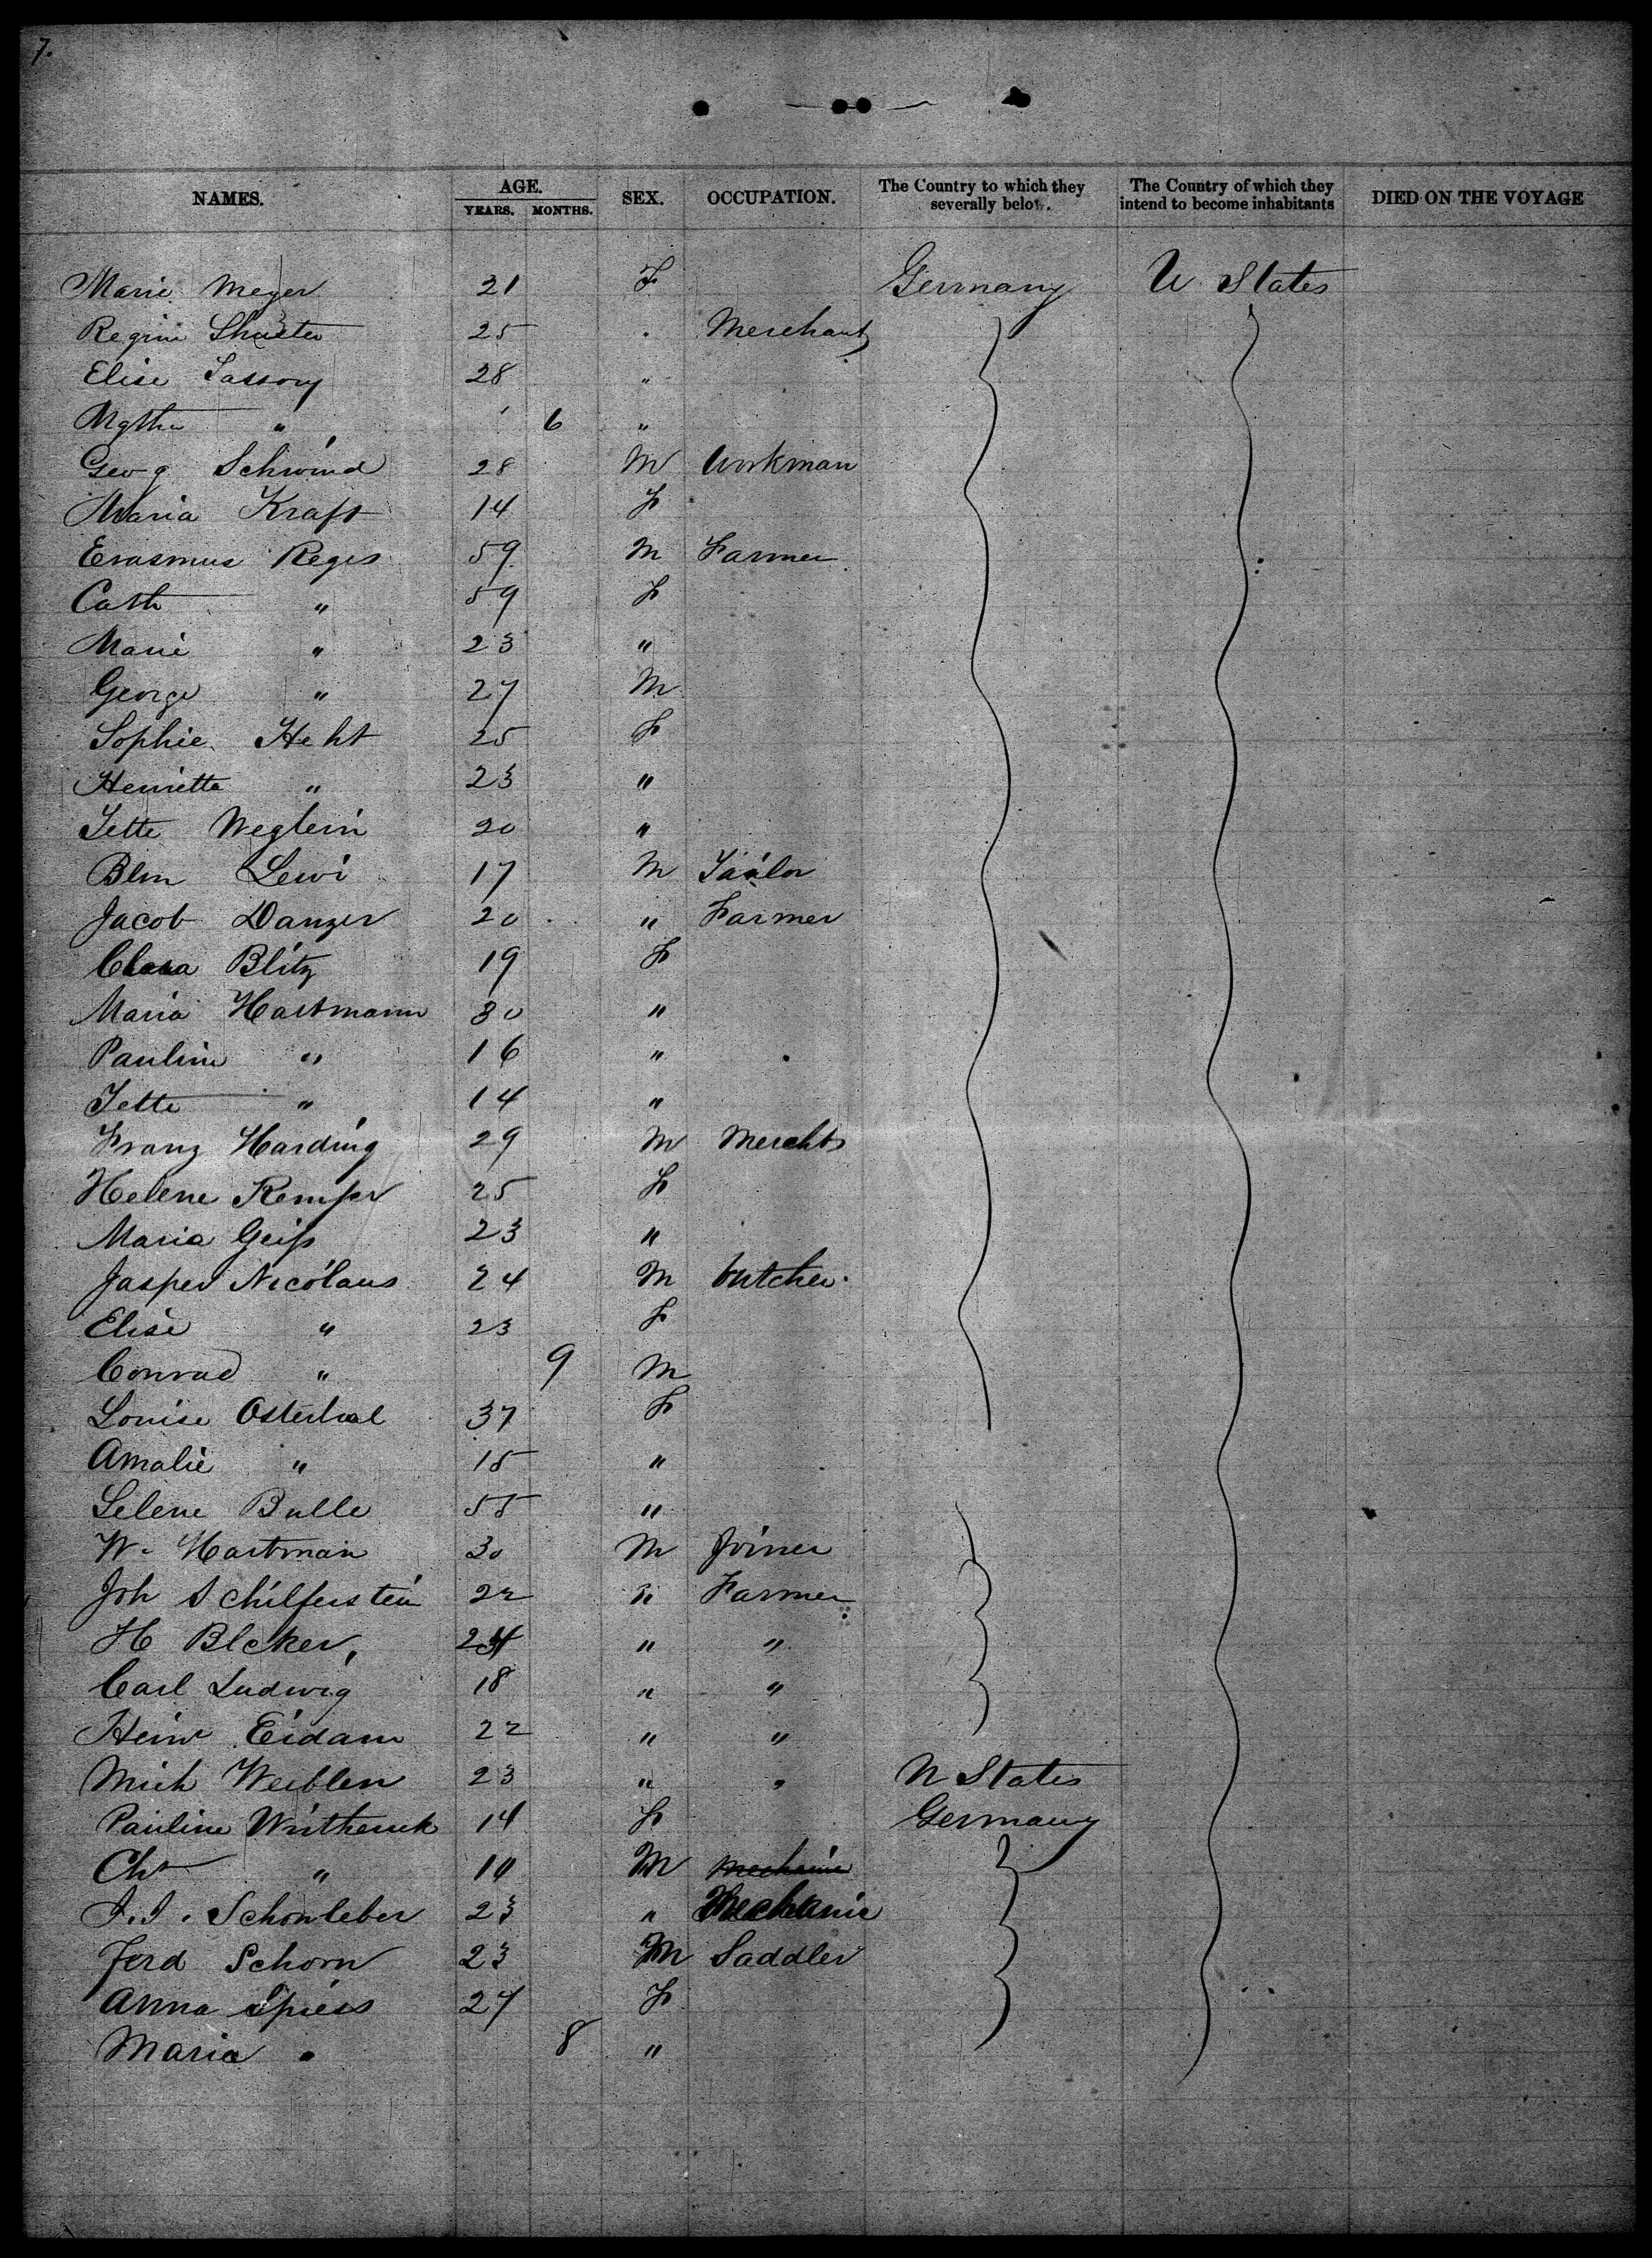 7.
NAMES. AGE. YEARS. MONTHS. SEX. OCCUPATION. The Country to which they severally belong. The Country of which they intend to become inhabitants DIED ON THE VOYAGE
Marie Meyer 21 F Germany U States
Regine 25 " Merchant
Elise Sassory 28 "
" 6 "
Georg Schwind 28 M Workman
Maria Kraft 14 F
Erasmus Reges 59 M Farmer
Cath " 59 F
Marie " 23 "
George " 27 M
Sophie Heht 25 F
Henrietta " 23 "
Jette Weglein 20 "
Blm Lewi 17 M Tailor
Jacob Danzer 20 " Farmer
Clara Blitz 19 F
Maria Hartmann 30 "
Pauline " 16 "
Jette " 14 "
Franz Harding 29 M Merchts
Helene Kemper 25 F
Maria Geiss 23 "
Jasper Nicolaus 24 M butcher
Elise " 23 F
Conrad " 9 M
Louise Ostertual 37 F
Amalie " 15 "
Selene Bulle 55 "
W. Hartman 30 M Joiner
Joh Schilferstein 22 " Farmer
H Blcker, 24 " "
Carl Ludwig 18 " "
Heinr Eidam 22 " "
Mich Weiblen 23 " " U States
Pauline 14 F Germany
Chr " 10 M mechanic
J. J. Schonleber 23 " Mechanic
Ferd Schorn 23 M Saddler
Anna Spiess 27 F
Maria " 8 "